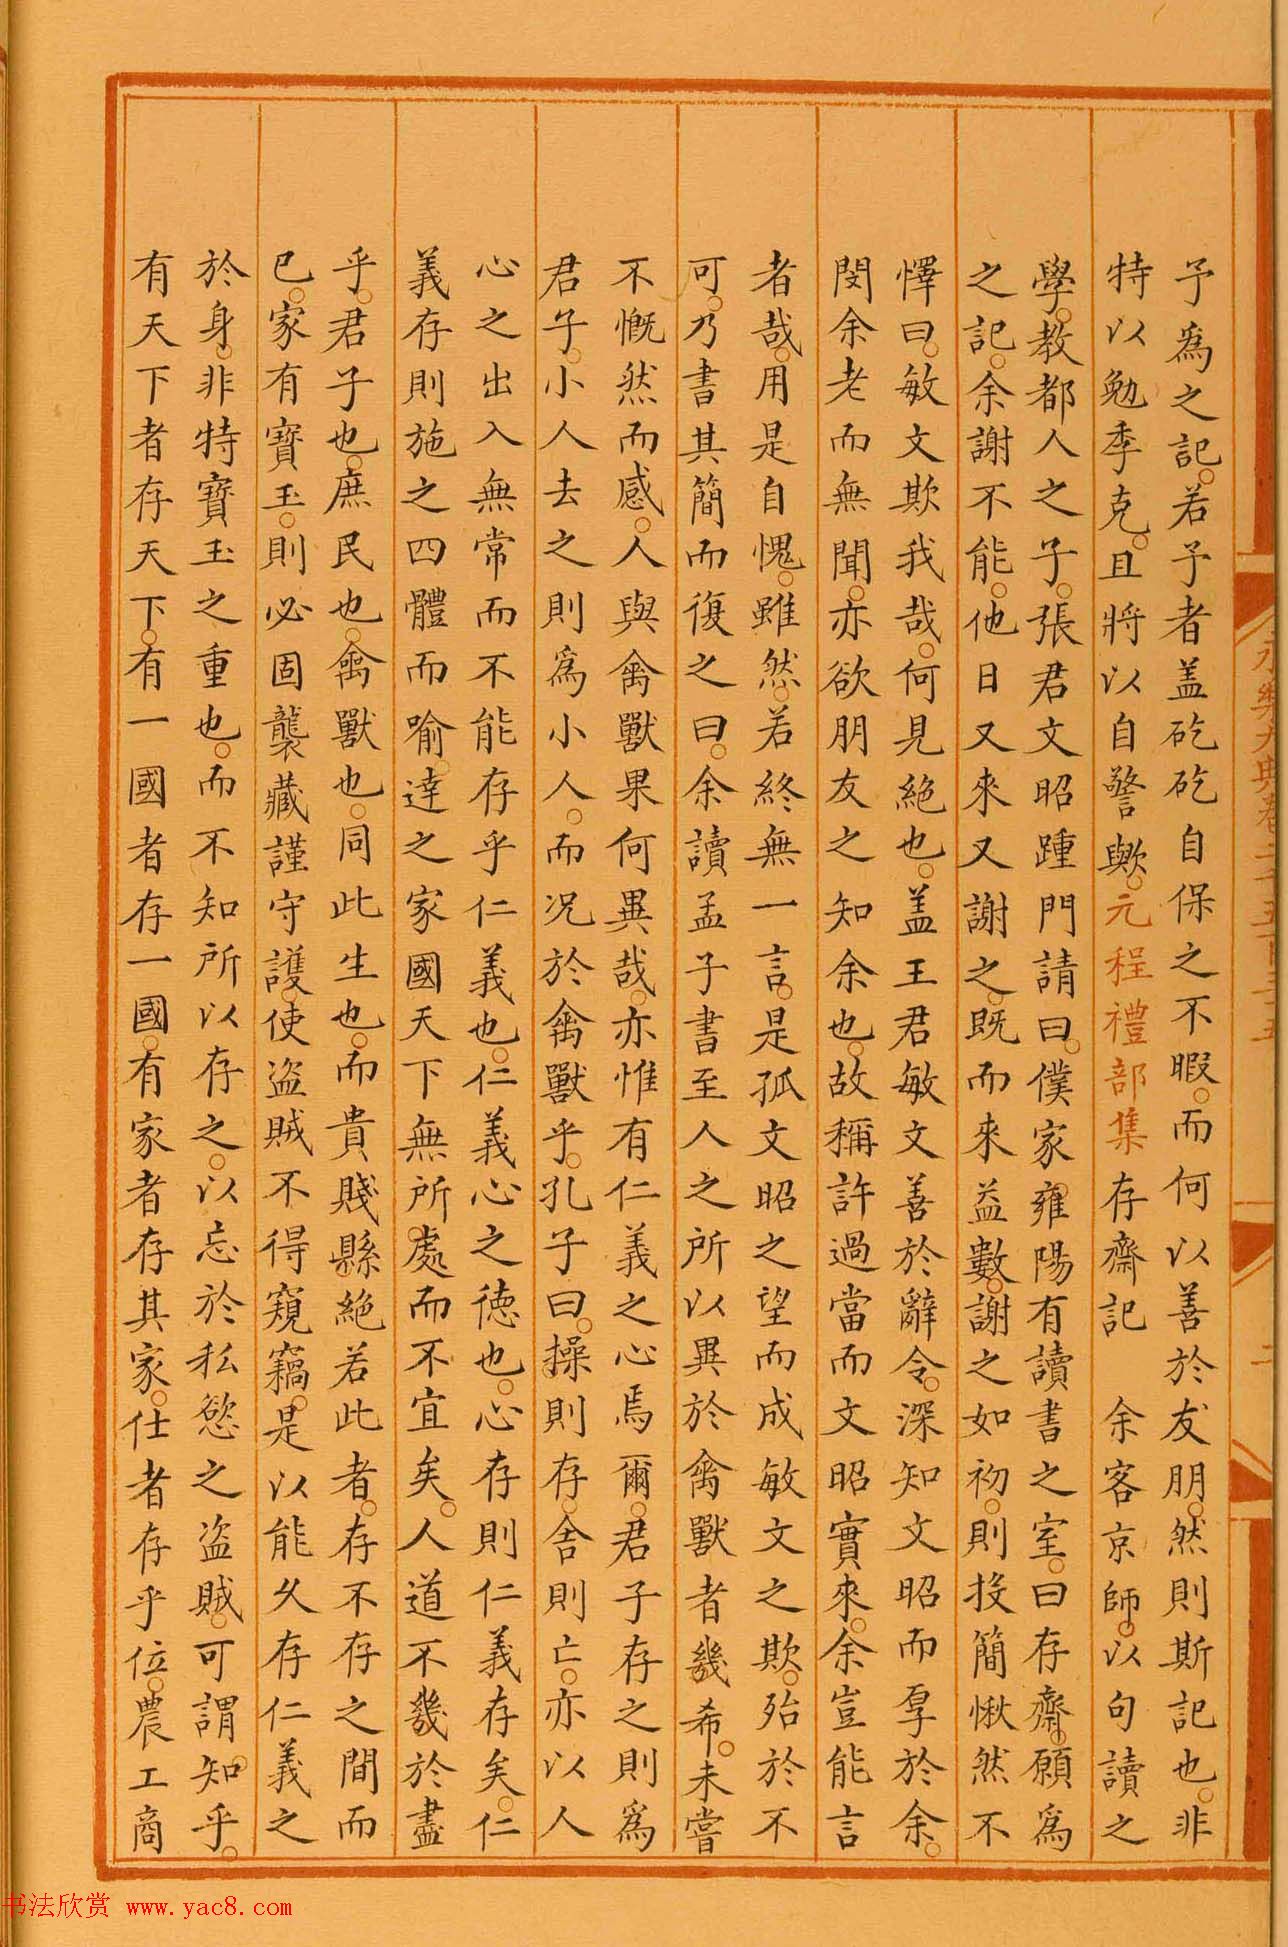 予爲之記。若予者盖矻矻自保之不暇。而何以善於友朋。然則斯記也。非
特以勉季克。且將以自警歟。元程禮部集存齋記　余客京師。以句讀之
學。教都人之子。張君文昭踵門請曰。僕家雍陽有讀書之室。曰存齋。願爲
之記。余謝不能。他日又來又謝之。既而來益數。謝之如初。則投簡愀然不
懌曰。敏文欺我哉。何見絶也。盖王君敏文善於辭令。深知文昭而厚於余。
閔余老而無聞。亦欲朋友之知余也。故稱許過當而文昭實來。余豈能言
者哉。用是自愧。雖然。若終無一言。是孤文昭之望而成敏文之欺。殆於不
可。乃書其簡而復之曰。余讀孟子書至人之所以異於禽獸者幾希。未嘗
不慨然而感。人與禽獸果何異哉。亦惟有仁義之心焉爾。君子存之則爲
君子。小人去之則爲小人。而况於禽獸乎。孔子曰。操則存。舍則亡。亦以人
心之出入無常而不能存乎仁義也。仁義心之徳也。心存則仁義存矣。仁
義存則施之四體而喻。達之家國天下無所。處而不宜矣。人道不幾於盡
乎。君子也。庶民也。禽獸也。同此生也。而貴賤縣。絶若此者。存不存之間而
已。家有寳玉。則必固襲藏謹守護。使盗賊不得窺竊。是以能久存仁義之
於身。非特寳玉之重也。而不知所以存之。以忘於私慾之盗賊。可謂知乎。
有天下者存天下。有一國者存一國。有家者存其家。仕者存乎位。農工商
永樂大典卷二千五百三十五
二
书法欣赏 www.yac8.com